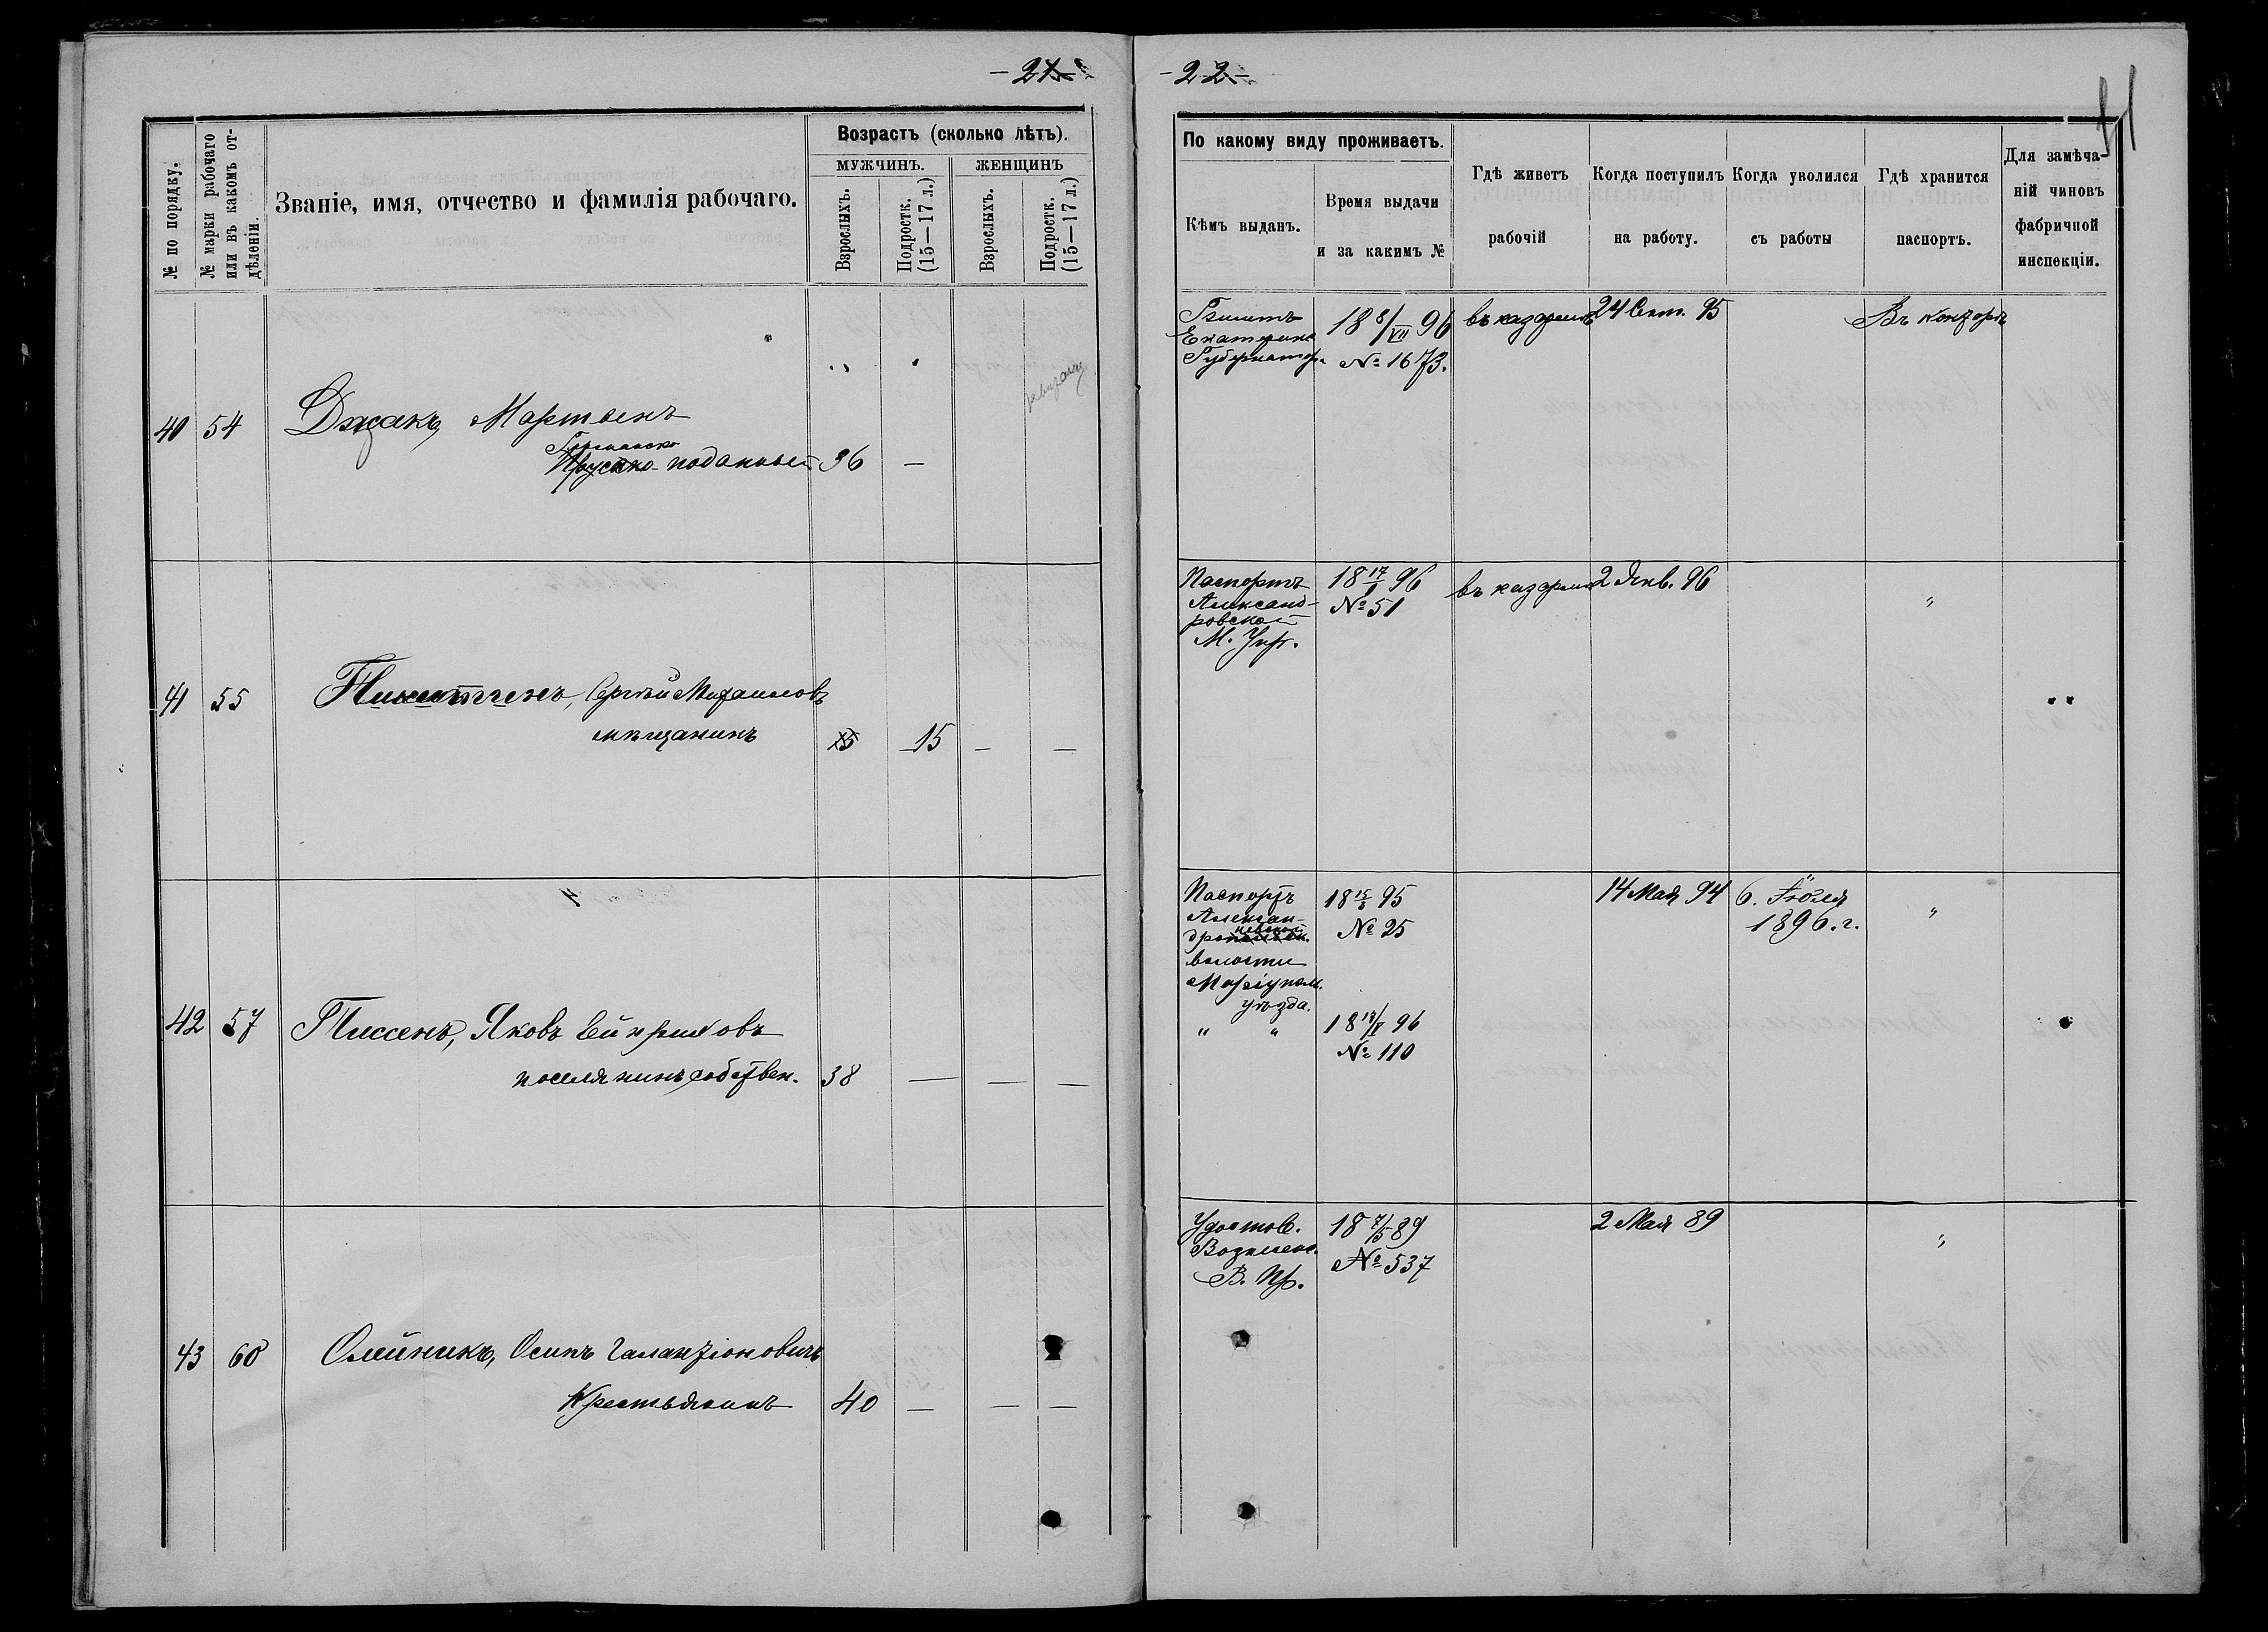 - 21 -
№ по порядку.
№ марки рабочаго или въ какомъ отдѣленіи.
Званіе, имя, отчество и фамилія рабочаго.
Возрастъ (сколько лѣтъ).
МУЖЧИНЪ.
ЖЕНЩИНЪ
Взрослыхъ.
Подростк. (15—17 л.)
Взрослыхъ.
Подростк. (15—17 л.)
40 54 Джакъ, Мартынъ
Германско
Прусско-поданный 36 —
41 55 Никитинъ, Сергѣй Михаиловъ
мѣщанинъ 15 15 — —
42 57 Тиссенъ, Яковъ
поселянинъ собствен. 38 — — —
43 60 Олейникъ, Осипъ
Крестьянинъ 40 — — —
- 22 -
По какому виду проживаетъ.
Кѣмъ выданъ.
Время выдачи
и за какимъ №
Гдѣ живетъ
рабочій
Когда поступилъ
на работу.
Когда уволился
съ работы
Гдѣ хранится
паспортъ.
Для замѣча-
ній чиновъ
фабричной
инспекціи.
Билетъ 18 8/VII 96 въ казармѣ 24 Сент. 95 Въ конторѣ
Екатерин
Губернатор. № 1673.
Паспортъ 18 17/I 96 въ казармѣ 2 Янв. 96 "
Александ- № 51
ровской
М. Упр.
Паспортъ 95 14 Мая 94 6. Іюля "
Алексан- 1896. г.
дро невской № 25
волости
Маріупол.
уѣзда.
" " 96
№ 110
Удостов. 18 7/5 89 2 Мая 89 "
Вознесен. № 537
В. Пр.